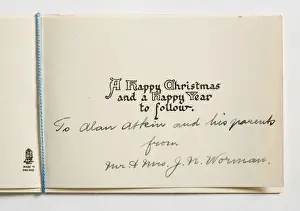 A Happy Christmas
and a Happy Year
to follow.
To Alan Atkin and his parents
from
Mr & Mrs. J. N. Worman.